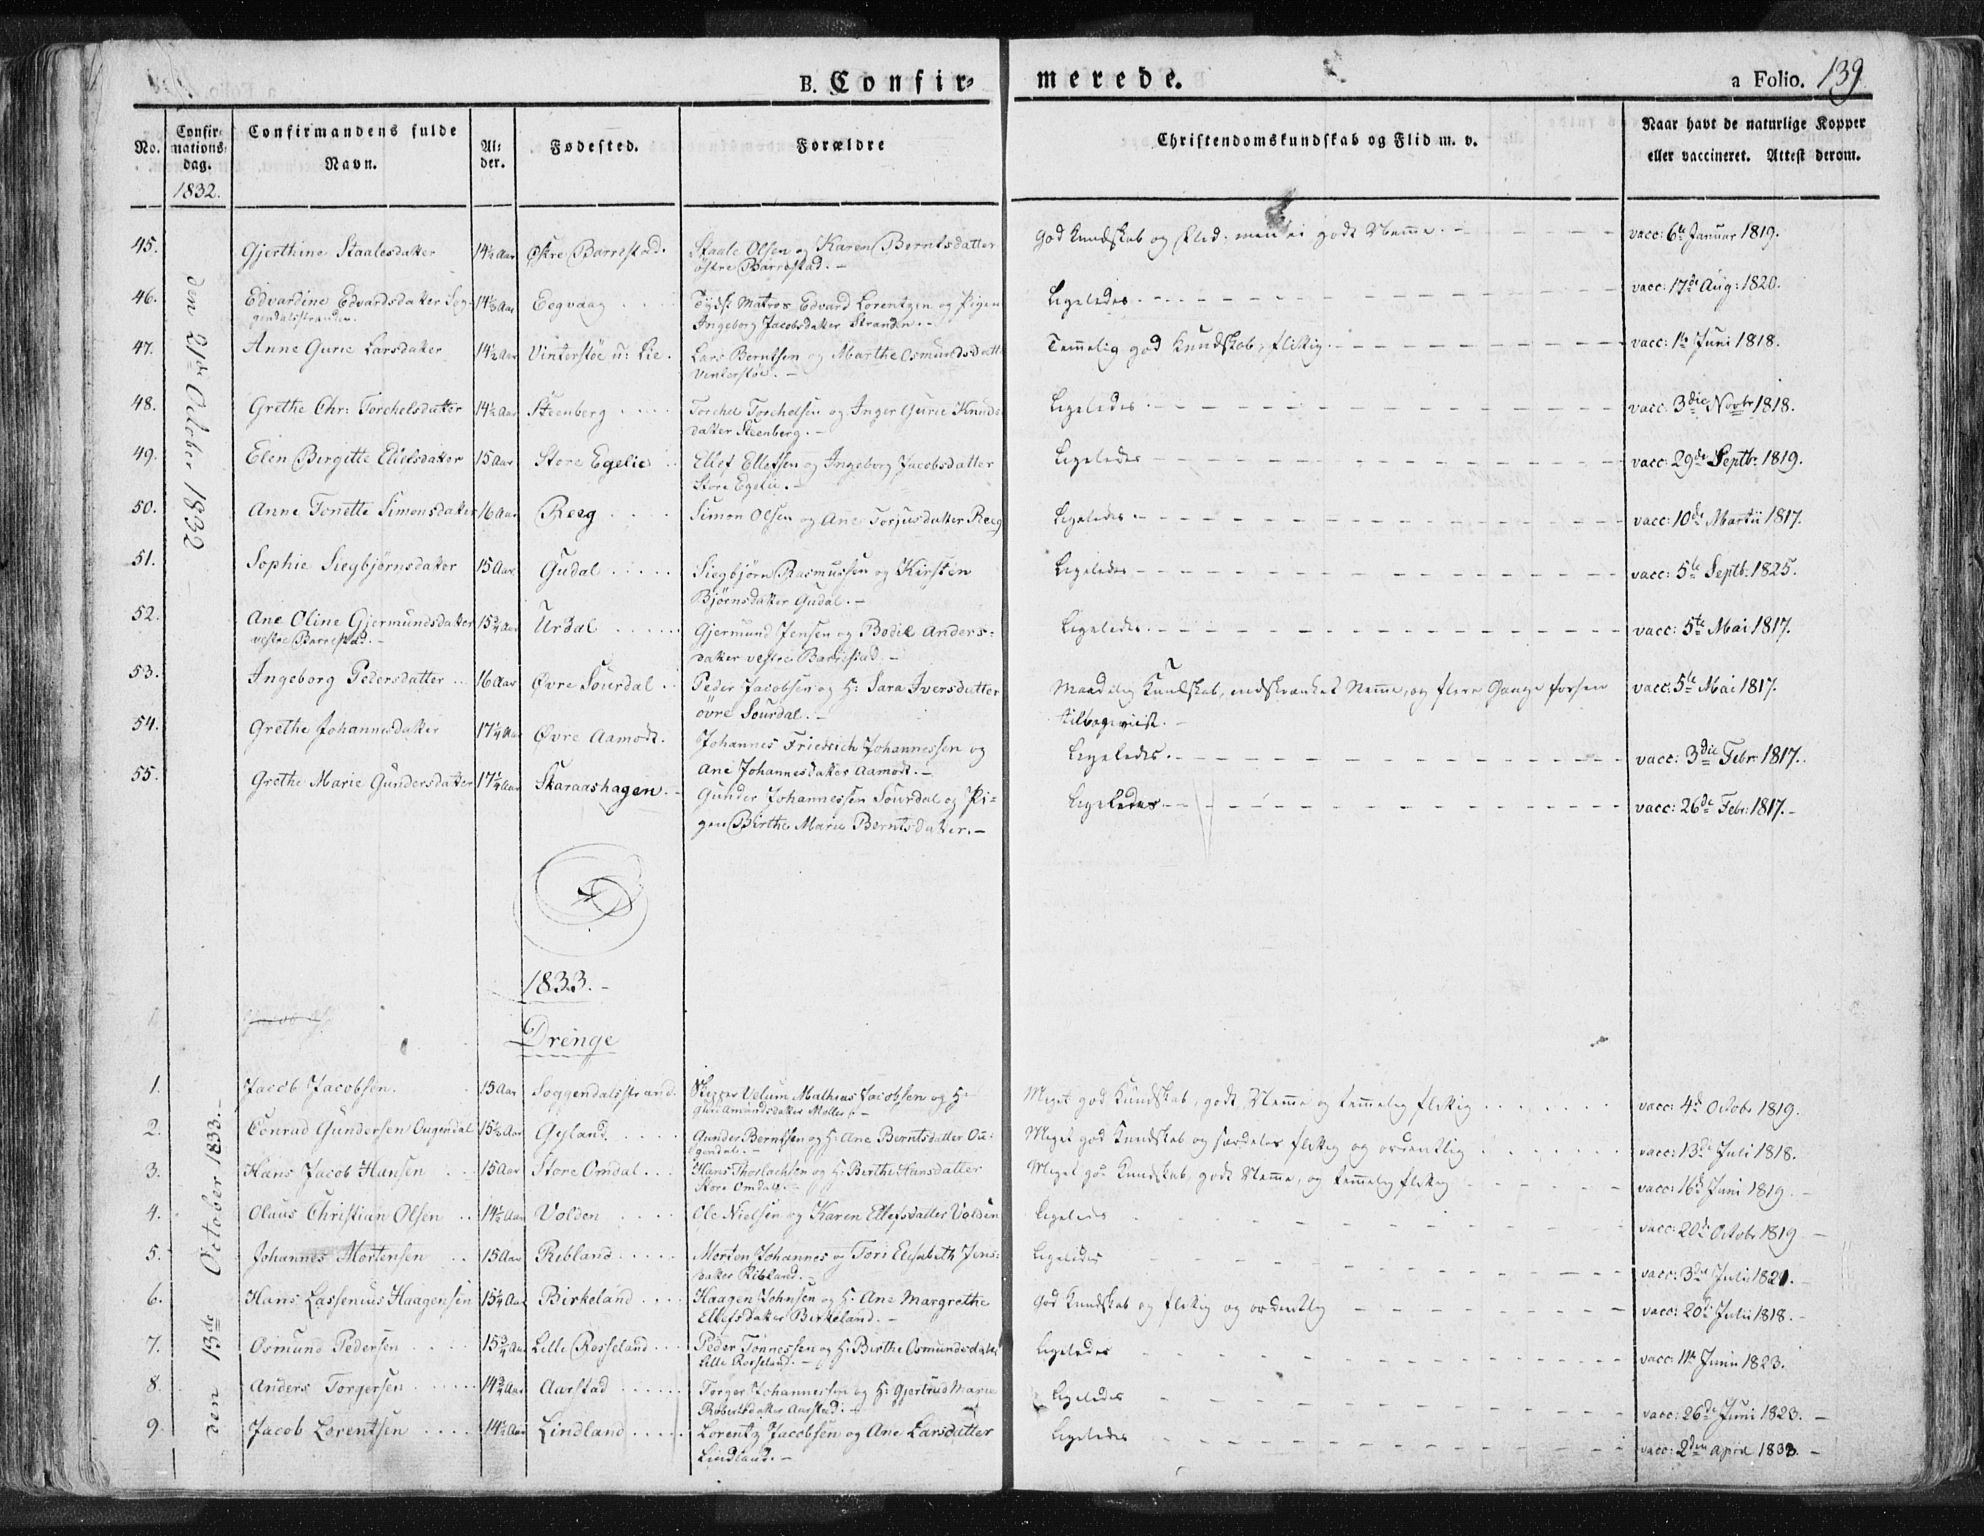 B. Confir-
merede.
a Folio. 139
No.
Confir-
mations-
dag.
Confirmandens fulde
Navn.
Al-
der.
Fødested.
Forældre
Christendomskundskab og Flid m. v.
Naar havt de naturlige Kopper
eller vaccineret. Attest derom.
1832.
den 21de October 1832
45. Gjerthine Staalesdatter 14½ Aar Østre Barrestad. Staale Olsen og Karen Berntsdatter
østre Barrestad. -
God Kundskab og Flid, men ei godt Nemme. - vacc: 6te Januar 1819.
46. Edvardine Edvardsdatter Sog- 14½ Aar Eegvaag Tydsk Matros Edvard Lorentzen og Pigen
gendalsstranden. Ingeborg Jacobsdatter Stranden. -
Ligeledes. vacc: 17de Aug: 1820.
47. Anne Gurie Larsdatter 14½ Aar Vinterstøe u: Lie. Lars Berntsen og Marthe Osmundsdatt:
Vinterstøe. -
Temmelig god Kundskab, flittig. vacc: 1te Juni 1818.
48. Grethe Chr: Torchelsdatter 14½ Aar Steenberg Torchel Torchelsen og Inger Gurie Knuds-
datter Steenberg. -
Ligeledes vacc: 3die Novbr 1818.
49. Elen Birgitte Elefsdatter 15 Aar Store Egelie Ellef Ellefsen og Ingeborg Jacobsdatter
Store Egelie. -
Ligeledes vacc: 29de Septbr 1819.
50. Anne Tonette Simonsdatter 16 Aar Reeg Simon Olsen og Ane Torjusdatter Reeg
Ligeledes. vacc: 10de Martii 1817.
51. Sophie Siegbjørnsdatter 15 Aar Gudal Siegbjørn Rasmussen og Kirsten
Bjørnsdatter Gudal. -
Ligeledes vacc: 5te Septb. 1825.
52. Ane Oline Gjermundsdatter 15¾ Aar Urdal Gjermund Jensen og Bodil Anders-
vestre Barrestad. - datter vestre Barrestad. -
Ligeledes. vacc: 5te Mai 1817.
53. Ingeborg Pedersdatter 16 Aar Øvre Sourdal Peder Jacobsen og H: Sara Iversdatter
øvre Sourdal. -
Maadelig Kundskab, indskrænket Nemme, og flere Gange forhen
tilbageviist. -
vacc: 5te Mai 1817.
54. Grethe Johannesdatter 17¼ Aar Øvre Aamodt. Johannes Friedrich Johannessen og
Ane Johannesdatter Aamodt. -
Ligeledes. vacc: 3die Febr: 1817.
55. Grethe Marie Gundersdatter 17¼ Aar Skaraashagen. Gunder Johannessen Sourdal og Pi-
gen Birthe Marie Berntsdatter. -
Ligeledes vacc: 26de Febr: 1817. -
1833. -
Drenge
den 13de October 1833. -
1. Jacob Jacobsen. 15 Aar Soggendalsstrand. Skipper Mathias Jacobsen og H:
Møller. -
Meget god Kundskab, godt Nemme og temmelig flittig vacc: 4de Octobr 1819.
2. Conrad Gundersen Ougendal 15½ Aar Gyland. Gunder Berntsen og H: Ane Berntsdatter Ou-
gendal. -
Meget god Kundskab og særdeles flittig og ordentlig vacc: 13de Juli 1818.
3. Hans Jacob Hansen 15 Aar Store Omdal Hans Thorlachsen og H: Berthe Hansdatter
Store Omdal. -
Meget god Kundskab, godt Nemme, og temmelig flittig vacc: 16de Juni 1819.
4. Olaus Christian Olsen 14½ Aar Volden Ole Nielsen og Karen Ellefsdatter Volden
Ligeledes vacc: 20de Octobr 1819. -
5. Johannes Mortensen 15 Aar Rebland Morten Johannes og Tori Elisabeth Jens-
datter Ribland. -
Ligeledes vacc: 3die Julii 1821. -
6. Hans Lassenius Haagensen 15¼ Aar Birkeland Haagen Johnsen og H: Ane Margrethe
Ellefsdatter Birkeland. -
God Kundskab og flittig og ordentlig vacc: 20de Julii 1818. -
7. Osmund Pedersen 15¾ Aar Lille Rosseland Peder Tønnessen og H: Berthe Osmundsdatter
Lille Rosseland. -
Ligeledes vacc: 11te Junii 1823.
8. Anders Torgersen 14¾ Aar Aarstad Torger Johannessen og H: Gjertrud Marie
Robertsdatter Aarstad. -
Ligeledes vacc: 26de Juni 1823. -
9. Jacob Lorentsen 14½ Aar Lindland Lorentz Jacobsen og Ane Larsdatter
Lindland. -
Ligeledes vacc: 2den April 1833. -